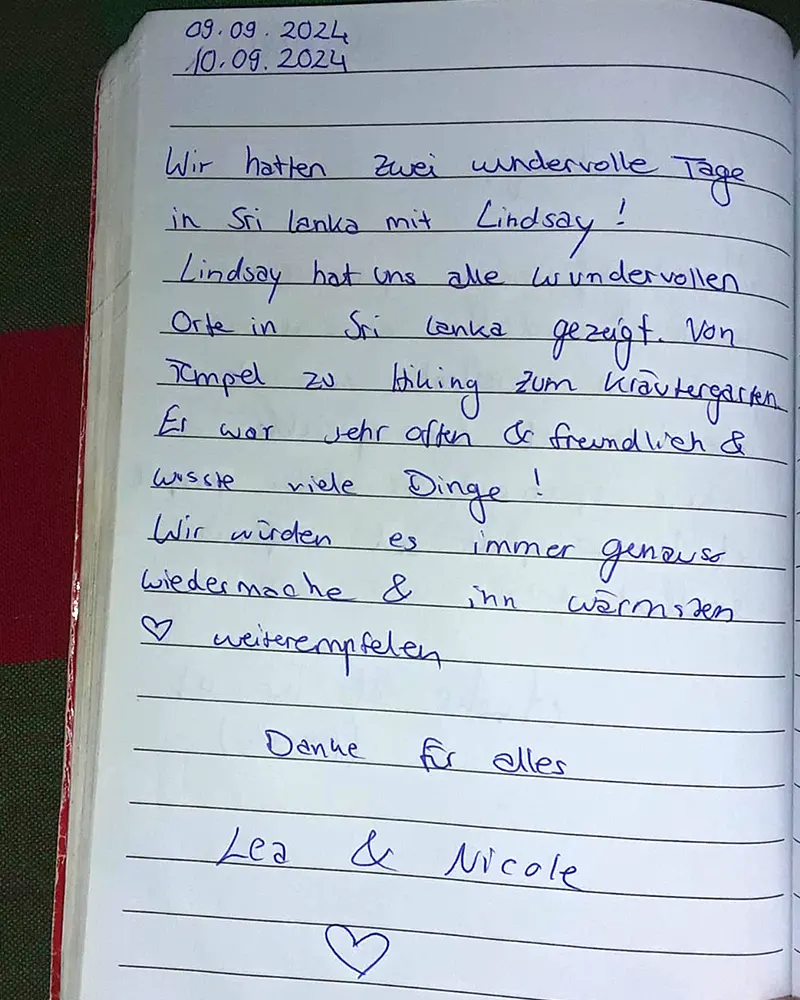 09.09.2024
10.09.2024
Wir hatten zwei wundervolle Tage
in Sri lanka mit Lindsay!
Lindsay hat uns alle wundervollen
Orte in Sri lanka gezeigt. Von
Tempel zu Hiking zum Kräutergarten
Er war sehr offen & freundlich &
wusste viele Dinge!
Wir würden es immer genauso
wiedermache & ihn wärmsten
♡ weiterempfelen
Danke für alles
Lea & Nicole
♡